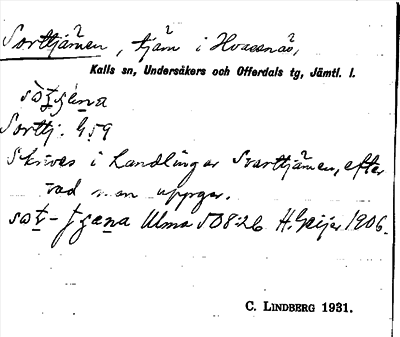 Sorttjärnen, tjärn i Hvassnäs,
Kalls sn, Undersåkers och Offerdals tg, Jämtl. l.
Sorttj. G59
Skrives i handlingar Svarttjärnen, efter
vad man uppger.
Ulma 508:26 H. Geijer 1906.
C. LINDBERG 1931.